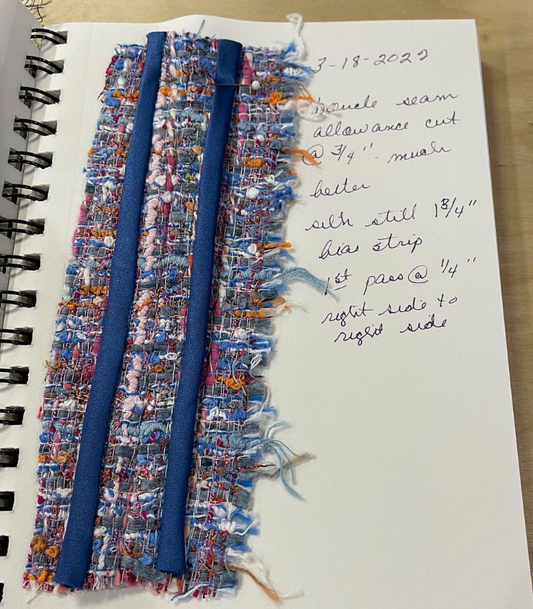 3-18-2022
boucle seam
allowance cut
@ 3/4" - much
better
silk still 1 3/4"
bias strip
1st pass @ 1/4"
right side to
right side